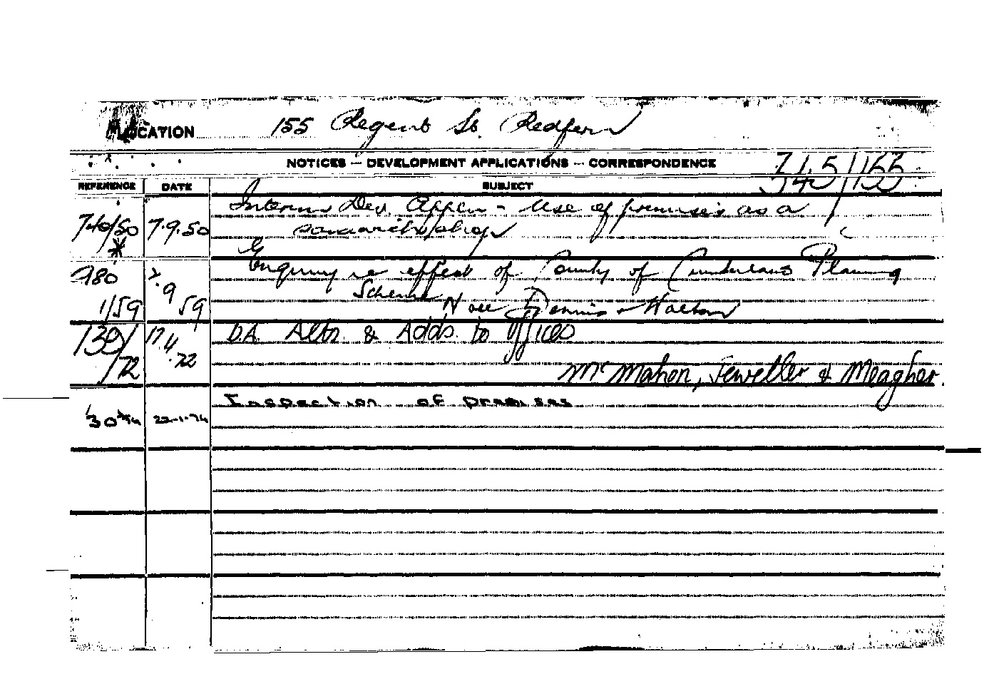 LOCATION 155 Regent St. Redfern
NOTICES – DEVELOPMENT APPLICATIONS – CORRESPONDENCE
REFERENCE DATE SUBJECT
740/50 7.9.50 Interim Dev. Appln - Use of premises as a
* sandwich shop
980 7.9 Enquiry re effect of County of Cumberland Planning
1/59 59 Scheme Noel Dennis & Walton
139/ 17.4 D.A. Altn. & Adds. to Offices
/72 .72
McMahon, Jeweller & Meagher.
Inspection of premises
22-1-74